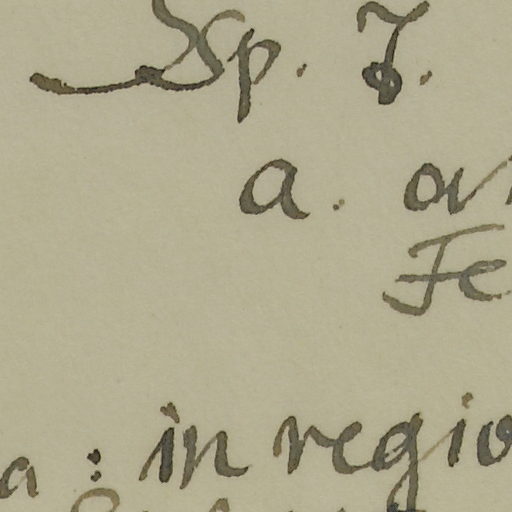 Sp. 7.
a. ov
Fe
a : in regio